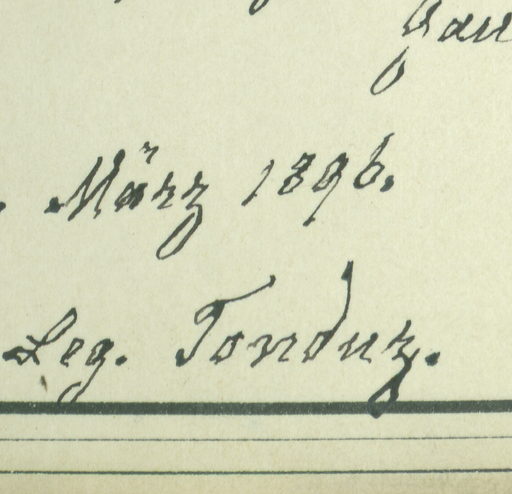 . März 1896.
Leg. Tonduz.